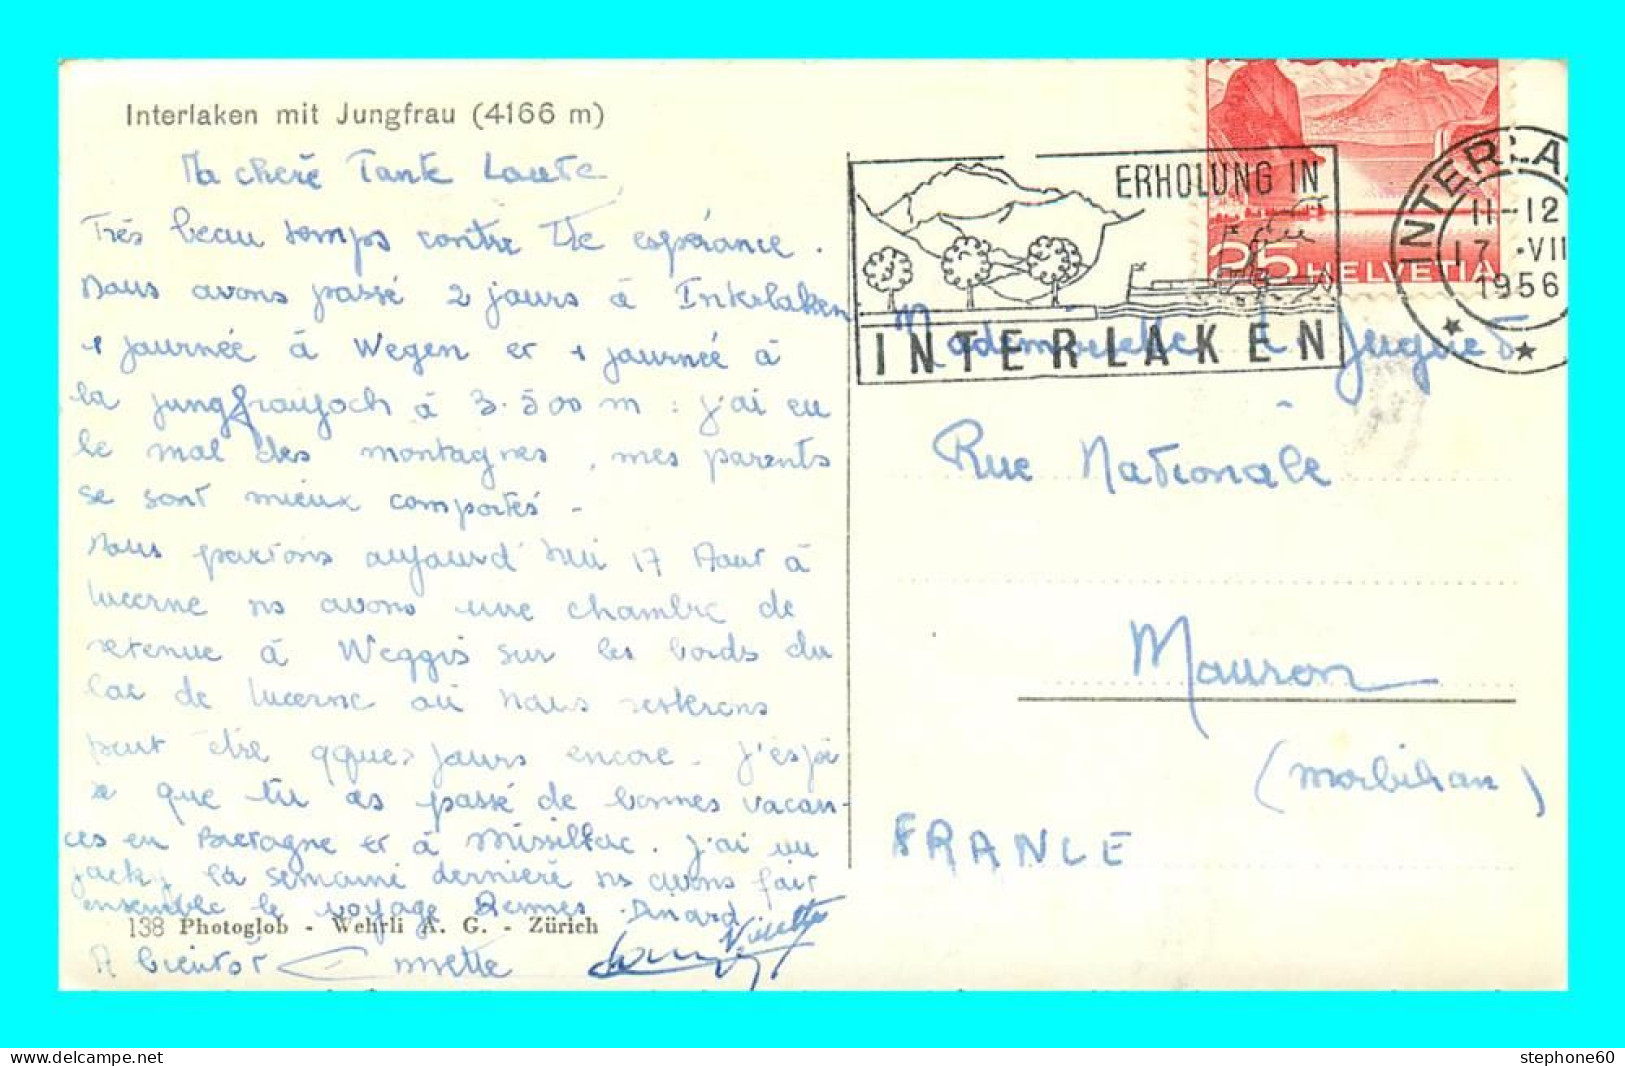 Interlaken mit Jungfrau (4166 m)
Ma chère Tante Laure
Très beau temps contre tte espérance.
Nous avons passé 2 jours à Interlaken
1 journée à Wegen et 1 journée à
la jungfraujoch à 3.500 m : j'ai eu
le mal des montagnes, mes parents
se sont mieux comportés -
Nous partons aujourd'hui 17 Aout à
lucerne ns avons une chambre de
retenue à Weggis sur les bords du
lac de lucerne où nous resterons
peut être qques jours encore. J'espè
re que tu as passé de bonnes vacan-
ces en Bretagne et à Missillac. J'ai vu
jacky la semaine dernière ns avons fait
ensemble le voyage Rennes Dinard
138 Photoglob - Wehrli A. G. - Zürich
A bientôt
ERHOLUNG IN
INTERLAKEN
25 HELVETIA
INTERLA
11-12
17.VII
1956
Mademoiselle L.
Rue Nationale
Mauron
(morbihan)
FRANCE
stephone60